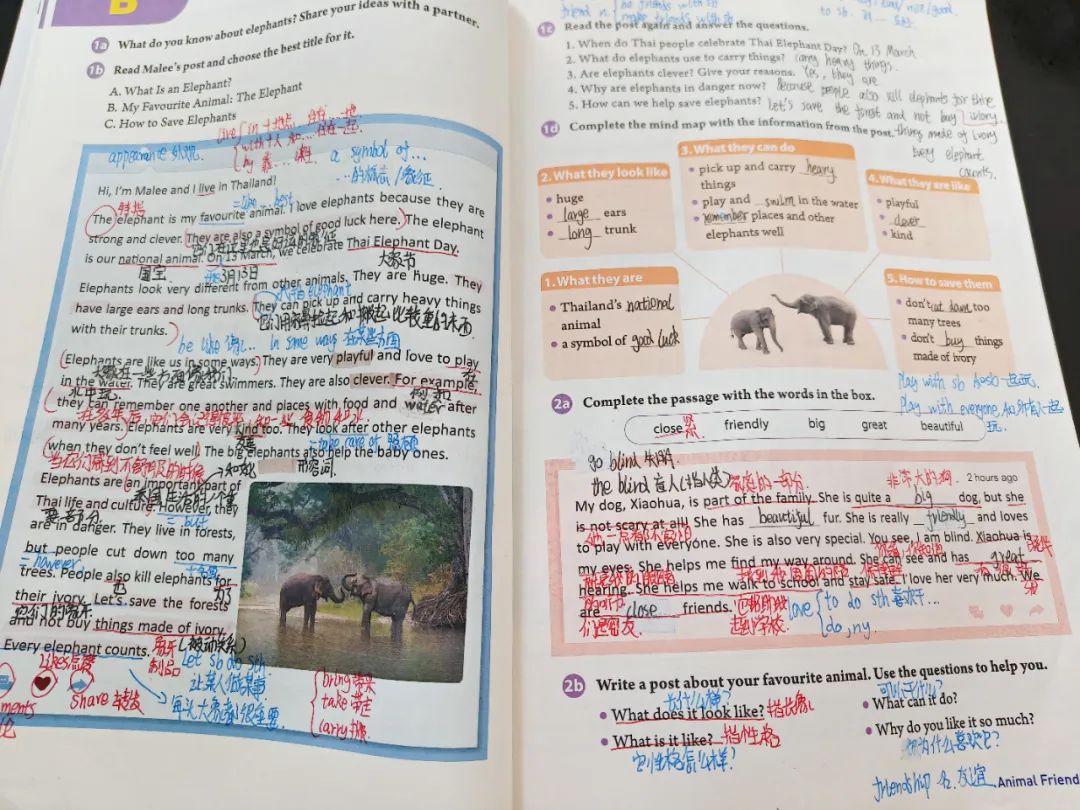 B
1a What do you know about elephants? Share your ideas with a partner.
1b Read Malee's post and choose the best title for it.
A. What Is an Elephant?
B. My Favourite Animal: The Elephant
C. How to Save Elephants
live
appearance 外观
a symbol of...
...的标志/象征
Hi, I'm Malee and I live in Thailand!
特指
The elephant is my favourite animal. I love elephants because they are
strong and clever. They are also a symbol of good luck here. The elephant
is our national animal. On 13 March, we celebrate Thai Elephant Day.
国宝
3月13日
大象节
Elephants look very different from other animals. They are huge. They
have large ears and long trunks. They can pick up and carry heavy things
with their trunks.
be like 像... in some ways 在某些方面
Elephants are like us in some ways. They are very playful and love to play
in the water. They are great swimmers. They are also clever. For example,
水中玩
例如
they can remember one another and places with food and water after
many years. Elephants are very kind too. They look after other elephants
= take care of 照顾
when they don't feel well. The big elephants also help the baby ones.
当他们感到不舒服的时候
形容词
Elephants are an important part of
Thai life and culture. However, they
= but
are in danger. They live in forests,
but people cut down too many
= however
trees. People also kill elephants for
their ivory. Let's save the forests
and not buy things made of ivory.
Every elephant counts.
Let sb do sth
让某人做某事
制品
Likes 点赞
Share 转发
ments
论
每头大象都很重要
bring 带来
take 带走
carry 搬
friend n.
be friends with sb
make friends with sb
1c Read the post again and answer the questions.
1. When do Thai people celebrate Thai Elephant Day? On 13 March
2. What do elephants use to carry things? carry heavy things.
3. Are elephants clever? Give your reasons. Yes, they are
4. Why are elephants in danger now? Because people also kill elephants for thire
ivory.
5. How can we help save elephants? Let's save the forest and not buy
things made of ivory
Every elephant
counts.
1d Complete the mind map with the information from the post.
2. What they look like
huge
large ears
long trunk
3. What they can do
pick up and carry heavy
things
play and swim in the water
remember places and other
elephants well
4. What they are like
playful
clever
kind
1. What they are
Thailand's national
animal
a symbol of good luck
5. How to save them
don't cut down too
many trees
don't buy things
made of ivory
2a Complete the passage with the words in the box.
Play with everyone
close friendly big great beautiful
go blind 失明
the blind 盲人
家庭的一部分
非常大的狗
2 hours ago
My dog, Xiaohua, is part of the family. She is quite a big dog, but she
is not scary at all! She has beautiful fur. She is really friendly and loves
to play with everyone. She is also very special. You see, I am blind. Xiaohua is
my eyes. She helps me find my way around. She can see and has great
hearing. She helps me walk to school and stay safe. I love her very much. We
are close friends.
love
to do sth 喜欢干...
doing.
2b Write a post about your favourite animal. Use the questions to help you.
长什么样?
可以干什么?
What does it look like? 指长像
What can it do?
What is it like? 指性格
Why do you like it so much?
它性格怎么样?
你为什么喜欢它?
friendship 名. 友谊
Animal Friend